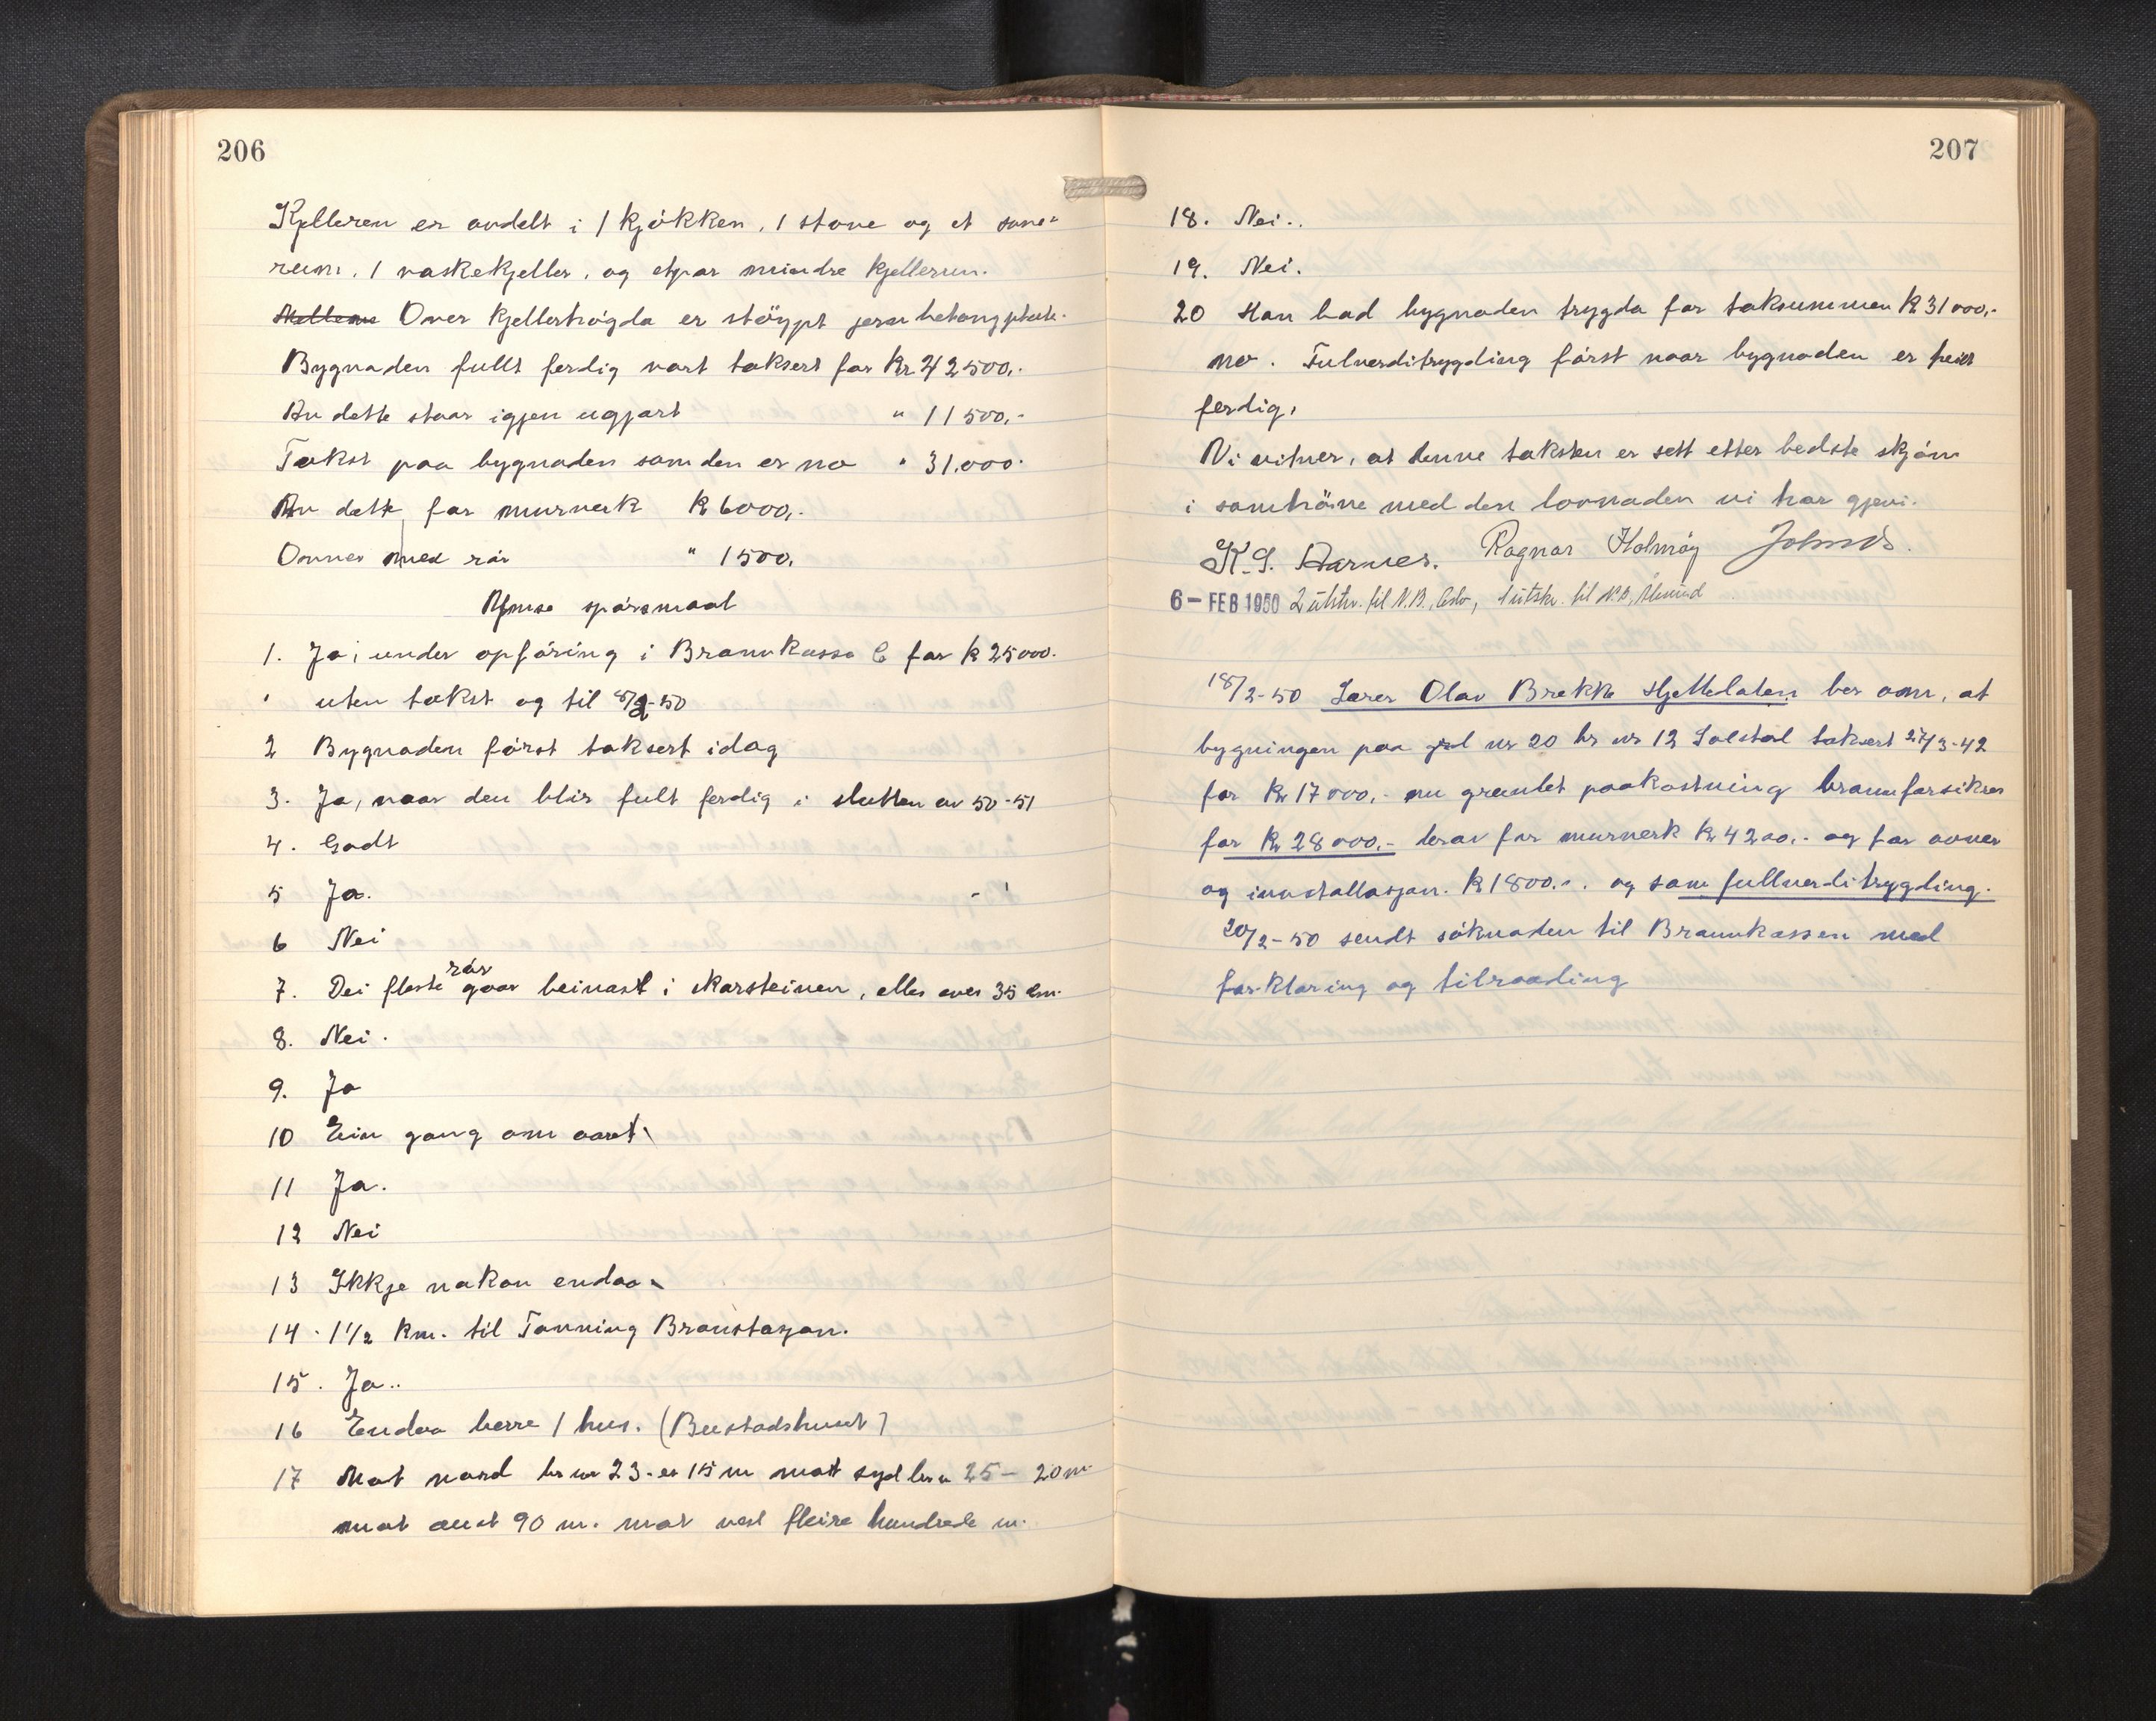 206
Kjelleren er avdelt i 1 kjøkken, 1 stove og et sove-
rum, 1 vaskekjeller, og etpar mindre kjellerrum.
Over kjellerhøgda er støypt jern betongplate.
Bygnaden fullt ferdig vart taksert for kr 42500,-
Av dette staar igjen ugjort " 11500,-
Takst paa bygnaden som den er no " 31.000-
Av dette for murverk kr 6000,-
Omner med rør " 1500,
Ymse spørsmaal
1. Ja, under opføring i Brannkassa C for kr 25000.
uten takst og til 8/2-50
2 Bygnaden først taksert idag
3. Ja, naar den blir fult ferdig i slutten av 50-51
4. Godt
5 Ja.
6 Nei
7. Dei fleste rør gaar beinast i skorsteinen, elles over 35 cm.
8. Nei.
9. Ja
10 Ein gang om aaret
11 Ja.
12 Nei
13 Ikkje nokon endaa
14. 1 1/2 km. til Tonning Branstasjon.
15. Ja..
16 Endaa berre 1 hus. (Bustadshuset)
17 Mot nord br nr 23 - er 15 m mott syd br n 25 - 20 m.
mot aust 90 m. mot vest fleire hundrede m.
207
18. Nei..
19. Nei.
20 Han bad bygnaden trygda for taksummen kr 31000,-
no. Fulverditrygding först naar bygnaden er heilt
ferdig,
Vi vitner, at denne taksten er sett etter bedste skjøn
i samhöve med den lovnaden vi har gjevi.
K. S. Aarnes. Ragnar Holmøy
6 - FEB 1950 2 utskr. til N.B., Oslo, 1 utskr. til N.B., Ålesund
18/2-50 Lærer Olav Brekke Hjelledalen ber om, at
bygningen paa grd nr 20 br nr 12 Solstad taksert 27/3-42
for kr 17000,- nu grundet paakostning brannforsikres
for kr 28000,- derav for murverk kr 4200,- og for ovner
og innstallasjon. kr 1800.-. og som fullverditrygding.
20/2-50 sendt söknaden til Brannkassen med
forklaring og tilraading